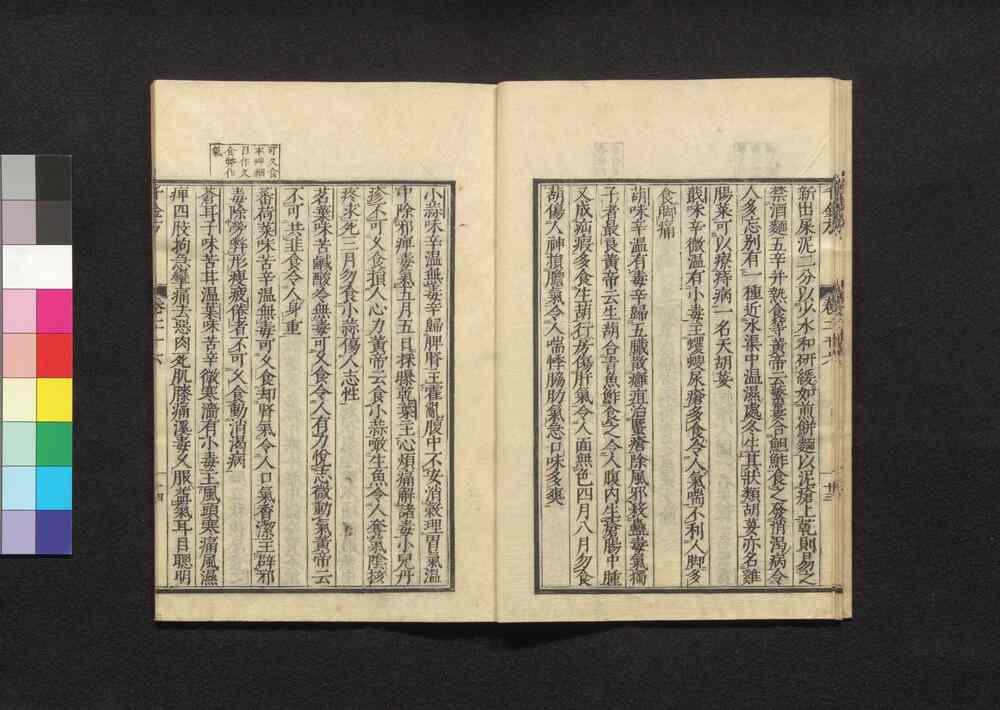 新出屎泥二分以少水和研緩如煎餅麵以泥瘡上乾則易之
禁酒麵五辛并熱食等黃帝云蘩蔞合䱇鮓食之發消渴病令
人多忘別有一種近水渠中温濕處冬生其狀類胡荽亦名雞
腸菜可以療痔病一名天胡荽
蕺味辛微温有小毒主蠼螋尿瘡多食令人氣喘不利人脚多
食脚痛
葫味辛温有毒辛歸五臟散癰疽治䘌瘡除風邪殺蠱毒氣獨
子者最良黃帝云生葫合青魚鮓食之令人腹内生瘡腸中腫
又成疝瘕多食生葫行房傷肝氣令人面無色四月八月勿食
葫傷人神損膽氣令人喘悸脇肋氣急口味多爽
千金方
卷二十六
十三
可久食
本艸綱
目作久
食弊作
氣
小蒜味辛温無毒辛歸脾腎主霍亂腹中不安消穀理胃氣温
中除邪痺毒氣五月五日採曝乾葉主心煩痛解諸毒小兒丹
疹不可久食損人心力黃帝云食小蒜噉生魚令人奪氣陰核
疼求死三月勿食小蒜傷人志性
茗葉味苦鹹酸冷無毒可久食令人有力悅志微動氣黃帝云
不可共韭食令人身重
蕃荷葉味苦辛温無毒可久食却腎氣令人口氣香潔主辟邪
毒除勞弊形瘦疲倦者不可久食動消渴病
蒼耳子味苦甘温葉味苦辛微寒濇有小毒主風頭寒痛風濕
痺四肢拘急攣痛去惡肉死肌膝痛溪毒久服益氣耳目聰明
千金方
卷二十六
十四